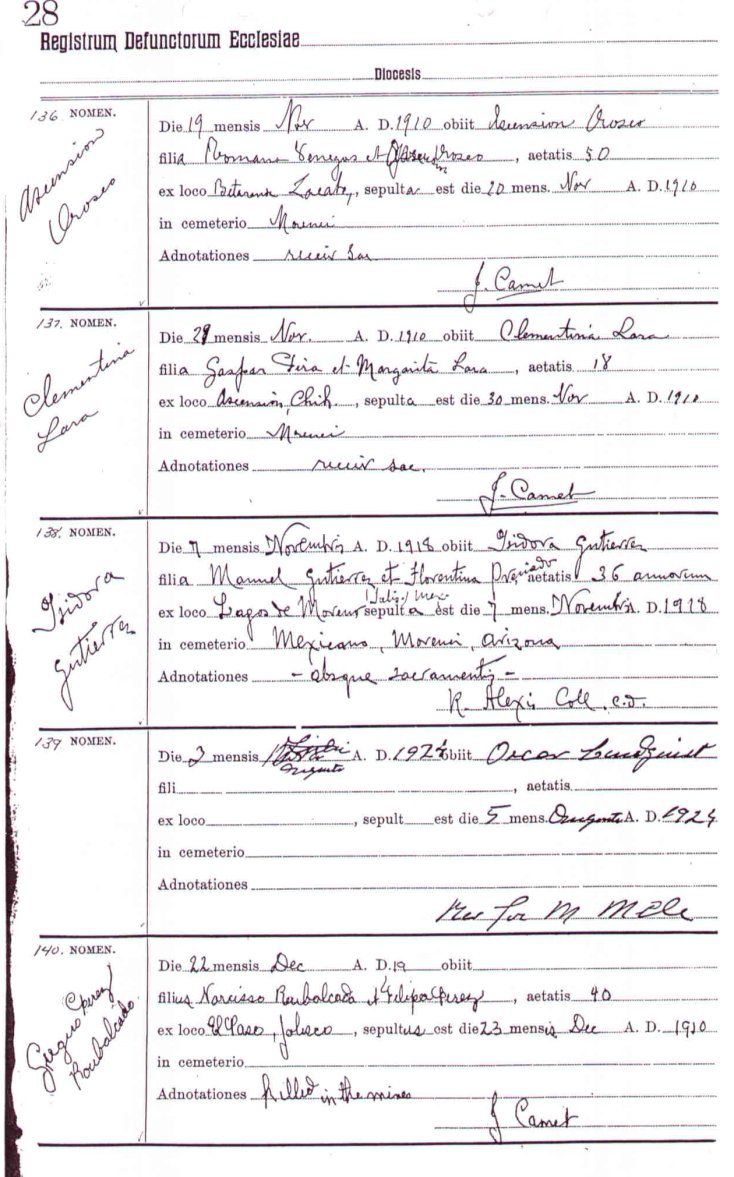 28
Registrum Defunctorum Ecclesiae
Diocesis
136. NOMEN.
Ascension
Orosco
Die 19 mensis Nov A. D. 1910 obiit Ascension Orosco
filia Romana Venegas et Orosco, aetatis 50
ex loco Zacate, sepulta est die 20 mens. Nov A. D. 1910
in cemeterio Morenci
Adnotationes receiv Sac
J. Camet
137. NOMEN.
Clementina
Lara
Die 29 mensis Nov. A. D. 1910 obiit Clementina Lara
filia Gaspar et Margarita Lara, aetatis 18
ex loco Ascension, Chih., sepulta est die 30 mens. Nov A. D. 1910
in cemeterio Morenci
Adnotationes receiv sac.
J. Camet
138. NOMEN.
Isidora
Gutierrez
Die 7 mensis Novembris A. D. 1918 obiit Isidora Gutierrez
filia Manuel Gutierrez et Florentina Preciado aetatis 36 annorum
(Jalis) Mex
ex loco Lagos de Moreno sepulta est die 7 mens. Novembris A. D. 1918
in cemeterio Mexicano, Morenci, Arizona
Adnotationes - absque sacramentis -
R. Alexis Coll. c.d.
139 NOMEN.
Die 3 mensis Augusto A. D. 1924 obiit Oscar Lundquist
fili , aetatis
ex loco , sepult est die 5 mens. Augusto A. D. 1924
in cemeterio
Adnotationes
Rev M
140. NOMEN.
Gregorio Perez
Roubalcado
Die 22 mensis Dec A. D. 19 obiit
filius Narcisso Roubalcada et Felipa Perez, aetatis 40
ex loco El Paso, Jalisco, sepultus est die 23 mensis Dec A. D. 1910
in cemeterio
Adnotationes killed in the mines
J Camet